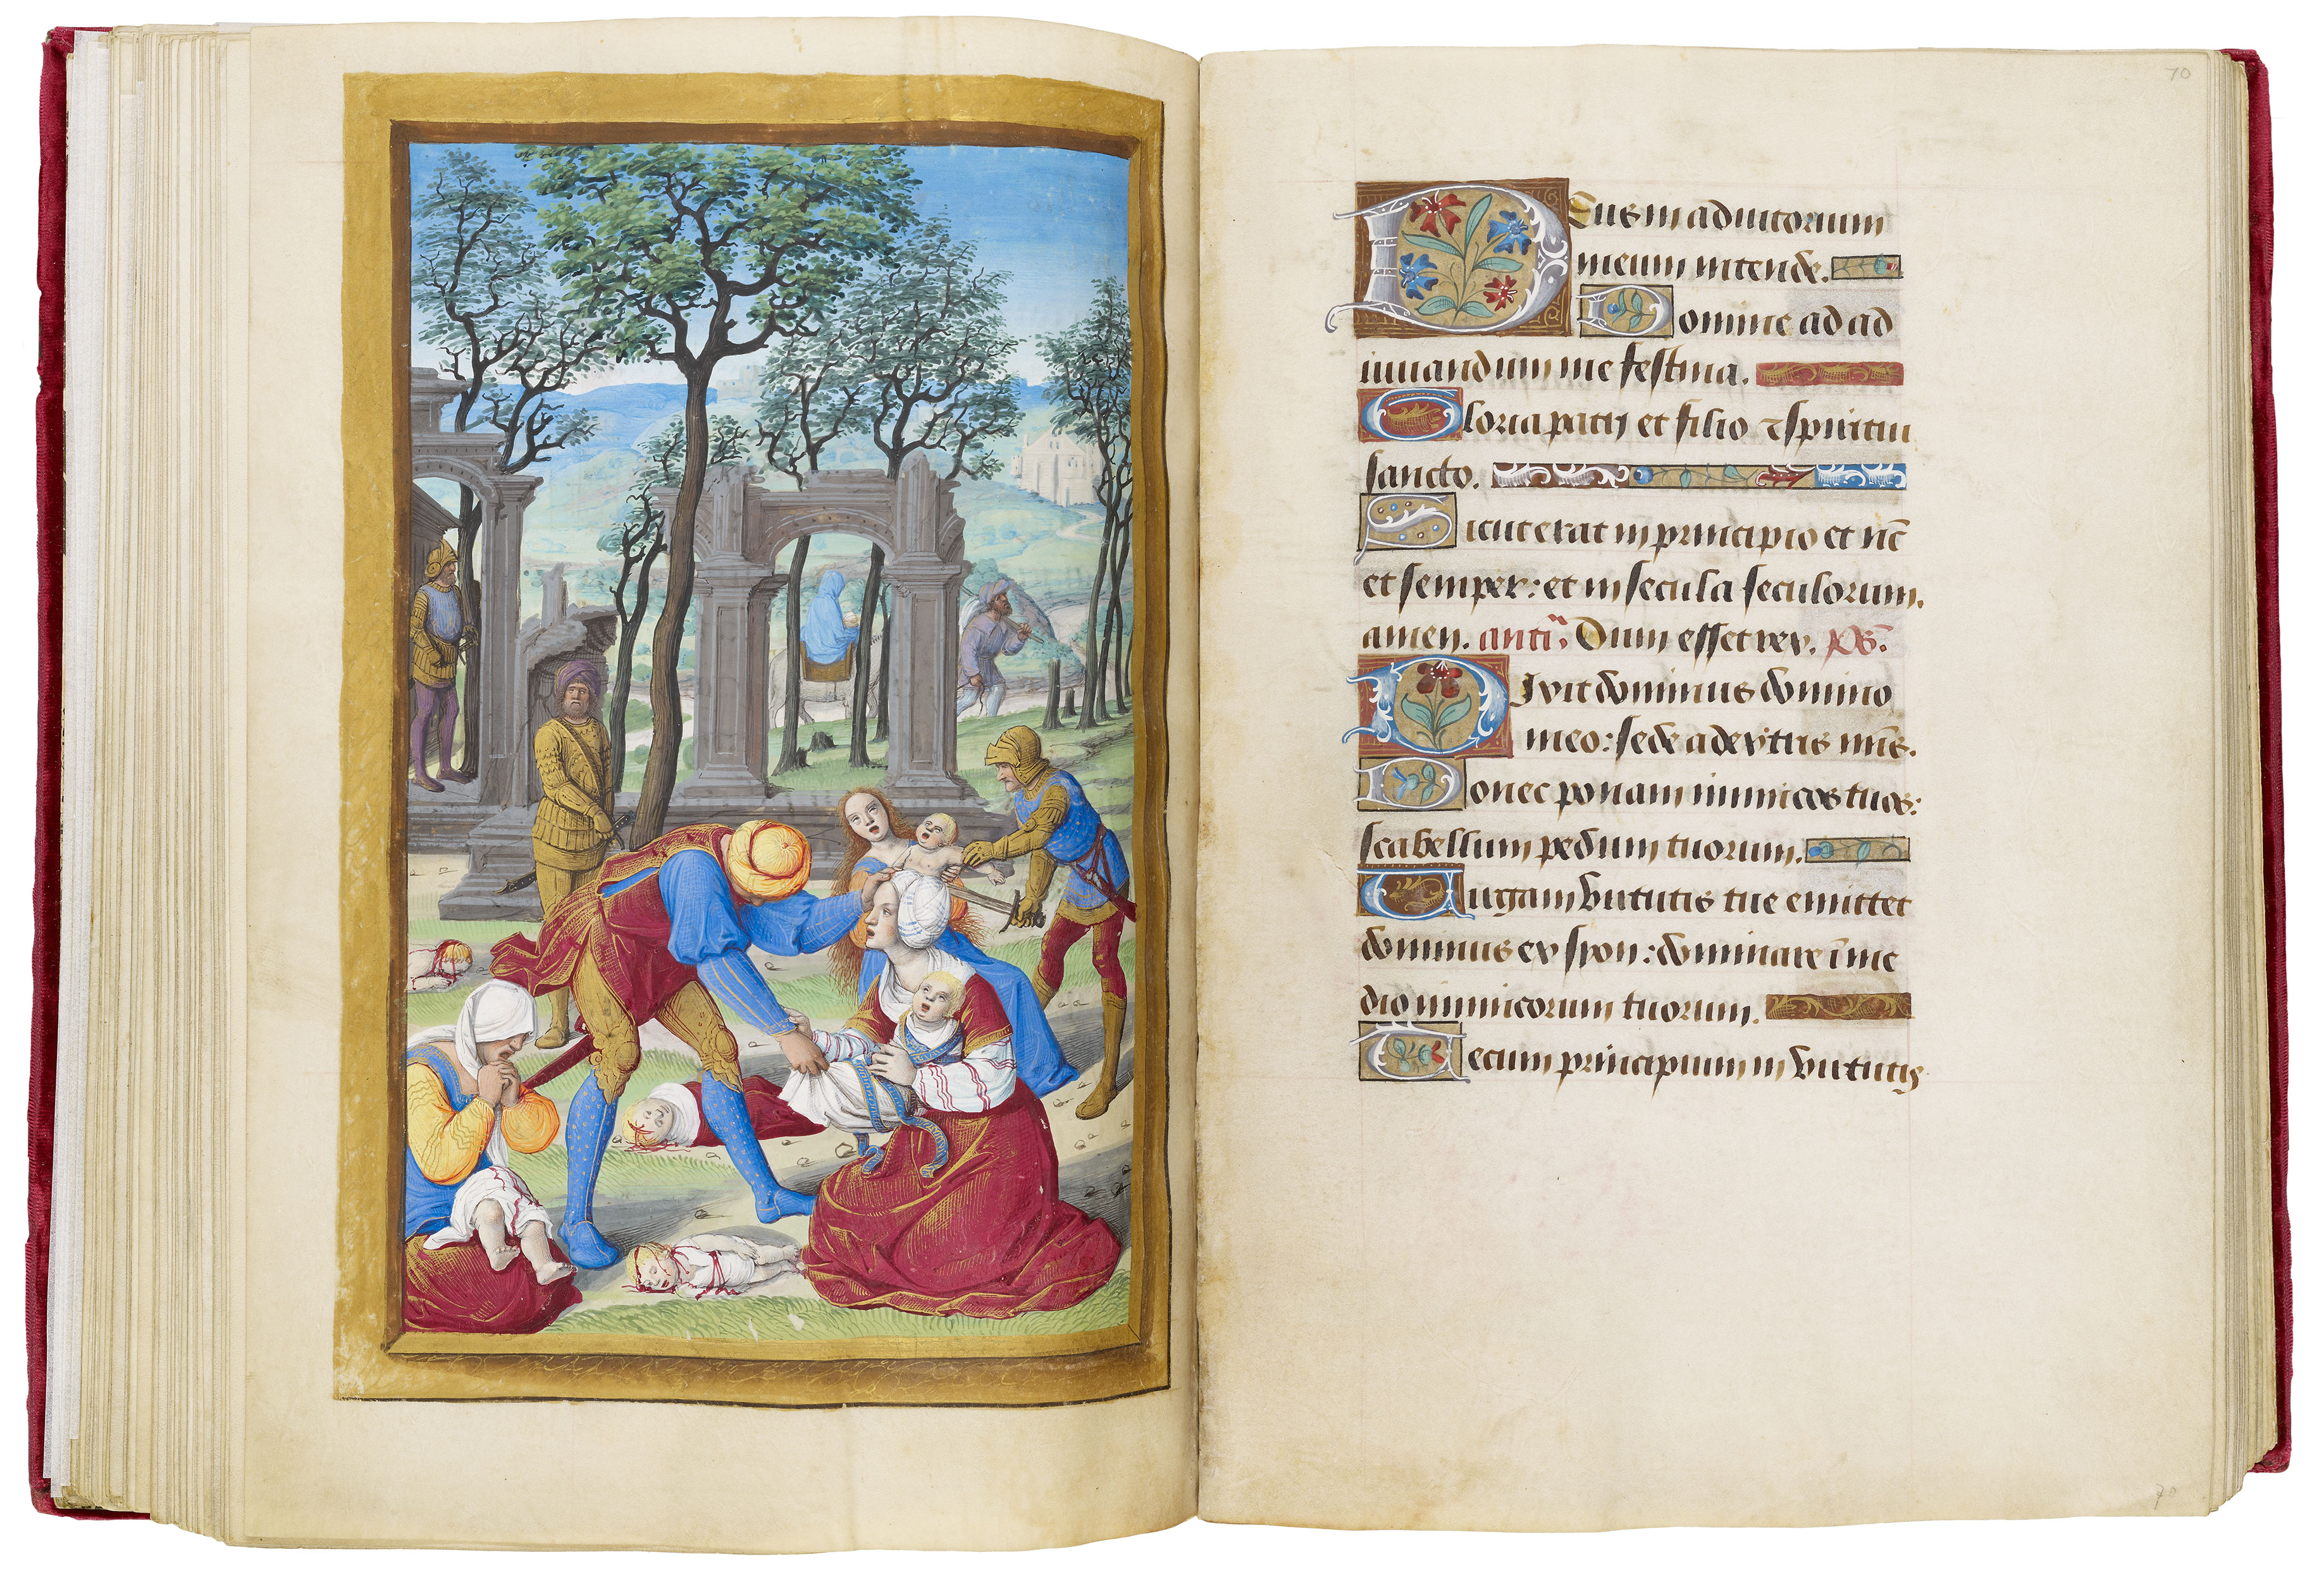 70
Deus in adiutorium
meum intende.
Domine ad ad
iuuandum me festina.
Gloria patri et filio ⁊ spiritui
sancto.
Sicut erat in principio et nūc
et semper: et in secula seculorum.
amen. anti. Dum esset rex. ps.
Dixit dominus domino
meo: sede a dextris meis.
Donec ponam inimicos tuos:
scabellum pedum tuorum.
Uirgam virtutis tue emittet
dominus ex syon: dominare ī me
dio inimicorum tuorum.
Tecum principium in virtutis
70